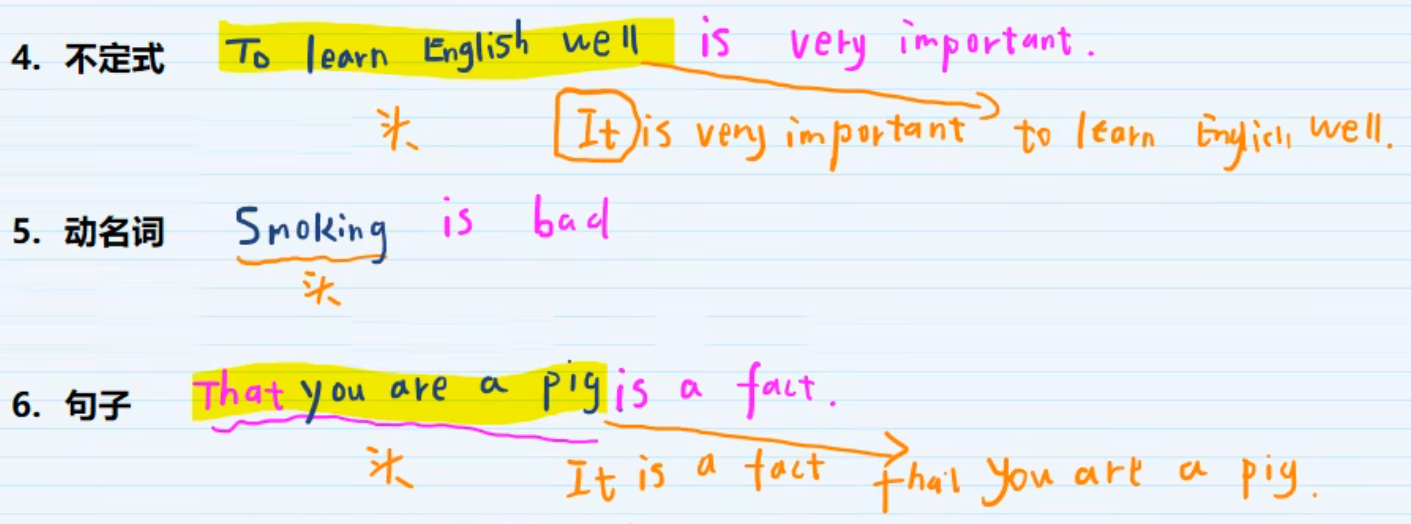 4. 不定式 To learn English well is very important.
头 It is very important to learn English well.
5. 动名词 Smoking is bad
头
6. 句子 That you are a pig is a fact.
头 It is a fact that you are a pig.